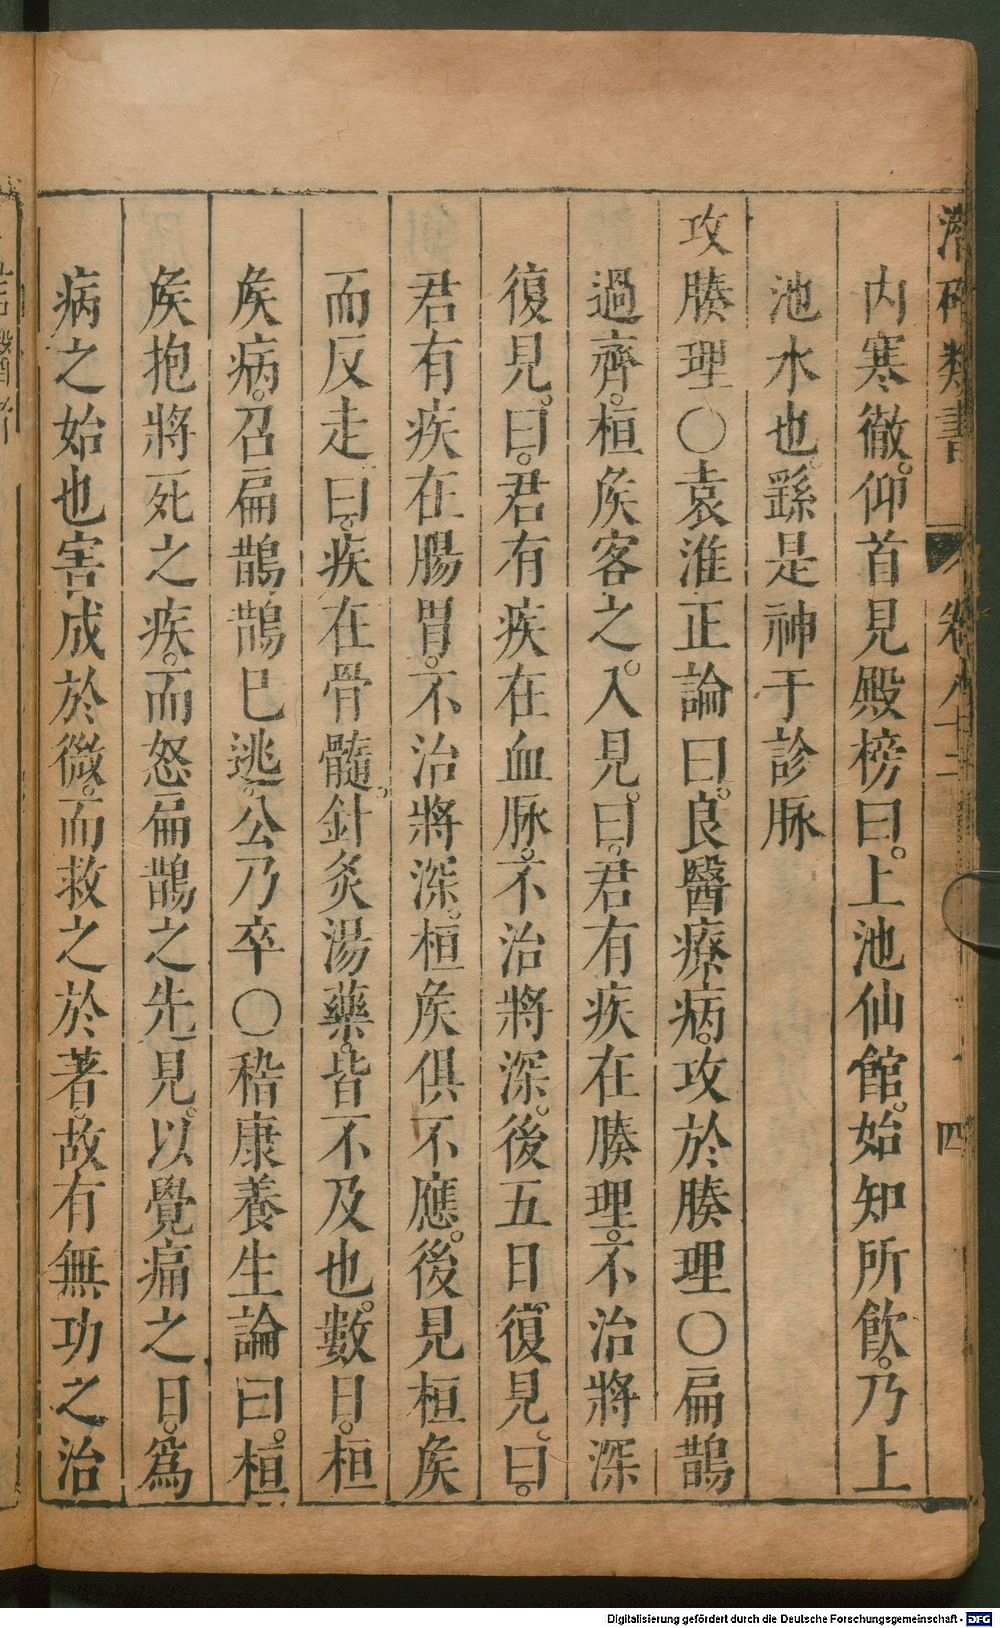 潛確類書 卷八十三 四
内寒徹。仰首見殿榜曰。上池仙館。始知所飲。乃上
池水也。繇是神于診脉
攻腠理○袁淮正論曰。良醫療病。攻於腠理○扁鵲
過齊。桓矦客之。入見。曰。君有疾在腠理。不治將深
復見。曰。君有疾在血脉。不治將深。後五日復見。曰。
君有疾在腸胃。不治將深。桓矦俱不應。後見桓矦
而反走曰。疾在骨髓。針灸湯藥。皆不及也。數日。桓
矦病。召扁鵲鵲巳逃。公乃卒○嵇康養生論曰。桓
矦抱將死之疾。而怒扁鵲之先見。以覺痛之日。爲
病之始也害成於微。而救之於著。故有無功之治
Digitalisierung gefördert durch die Deutsche Forschungsgemeinschaft - DFG